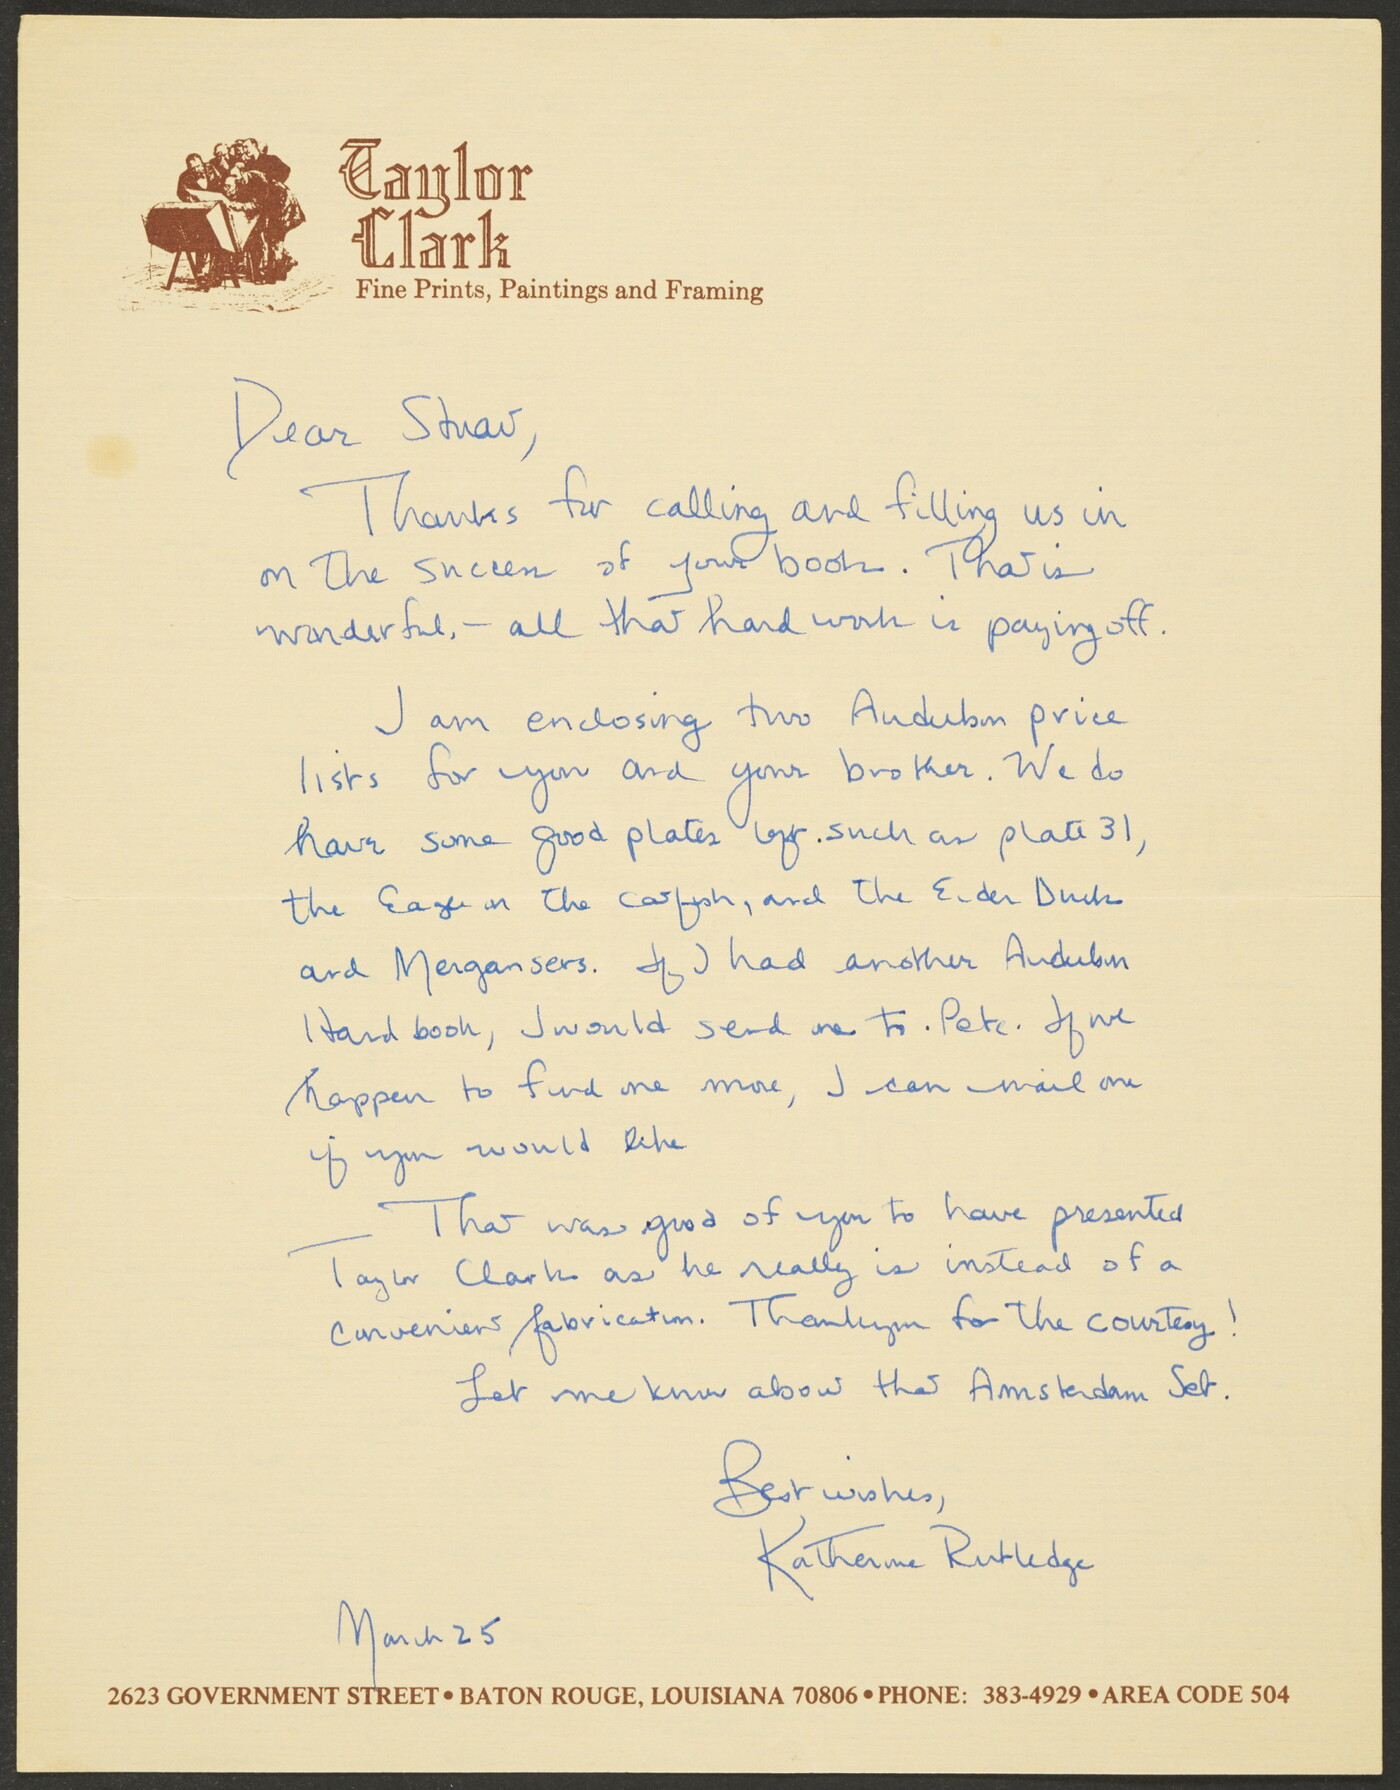 Taylor
Clark
Fine Prints, Paintings and Framing
Dear Stuart,
Thanks for calling and filling us in
on the success of your book. That is
wonderful, — all that hard work is paying off.
I am enclosing two Audubon price
lists for you and your brother. We do
have some good plates left. such as plate 31,
the Eagle on the catfish, and the Eider Duck
and Mergansers. If I had another Audubon
Handbook, I would send one to Pete. If we
happen to find one more, I can mail one
if you would like
That was good of you to have presented
Taylor Clark as he really is instead of a
convenient fabrication. Thank you for the courtesy!
Let me know about the Amsterdam Set.
Best wishes,
Katherine Rutledge
March 25
2623 GOVERNMENT STREET • BATON ROUGE, LOUISIANA 70806 • PHONE: 383-4929 • AREA CODE 504